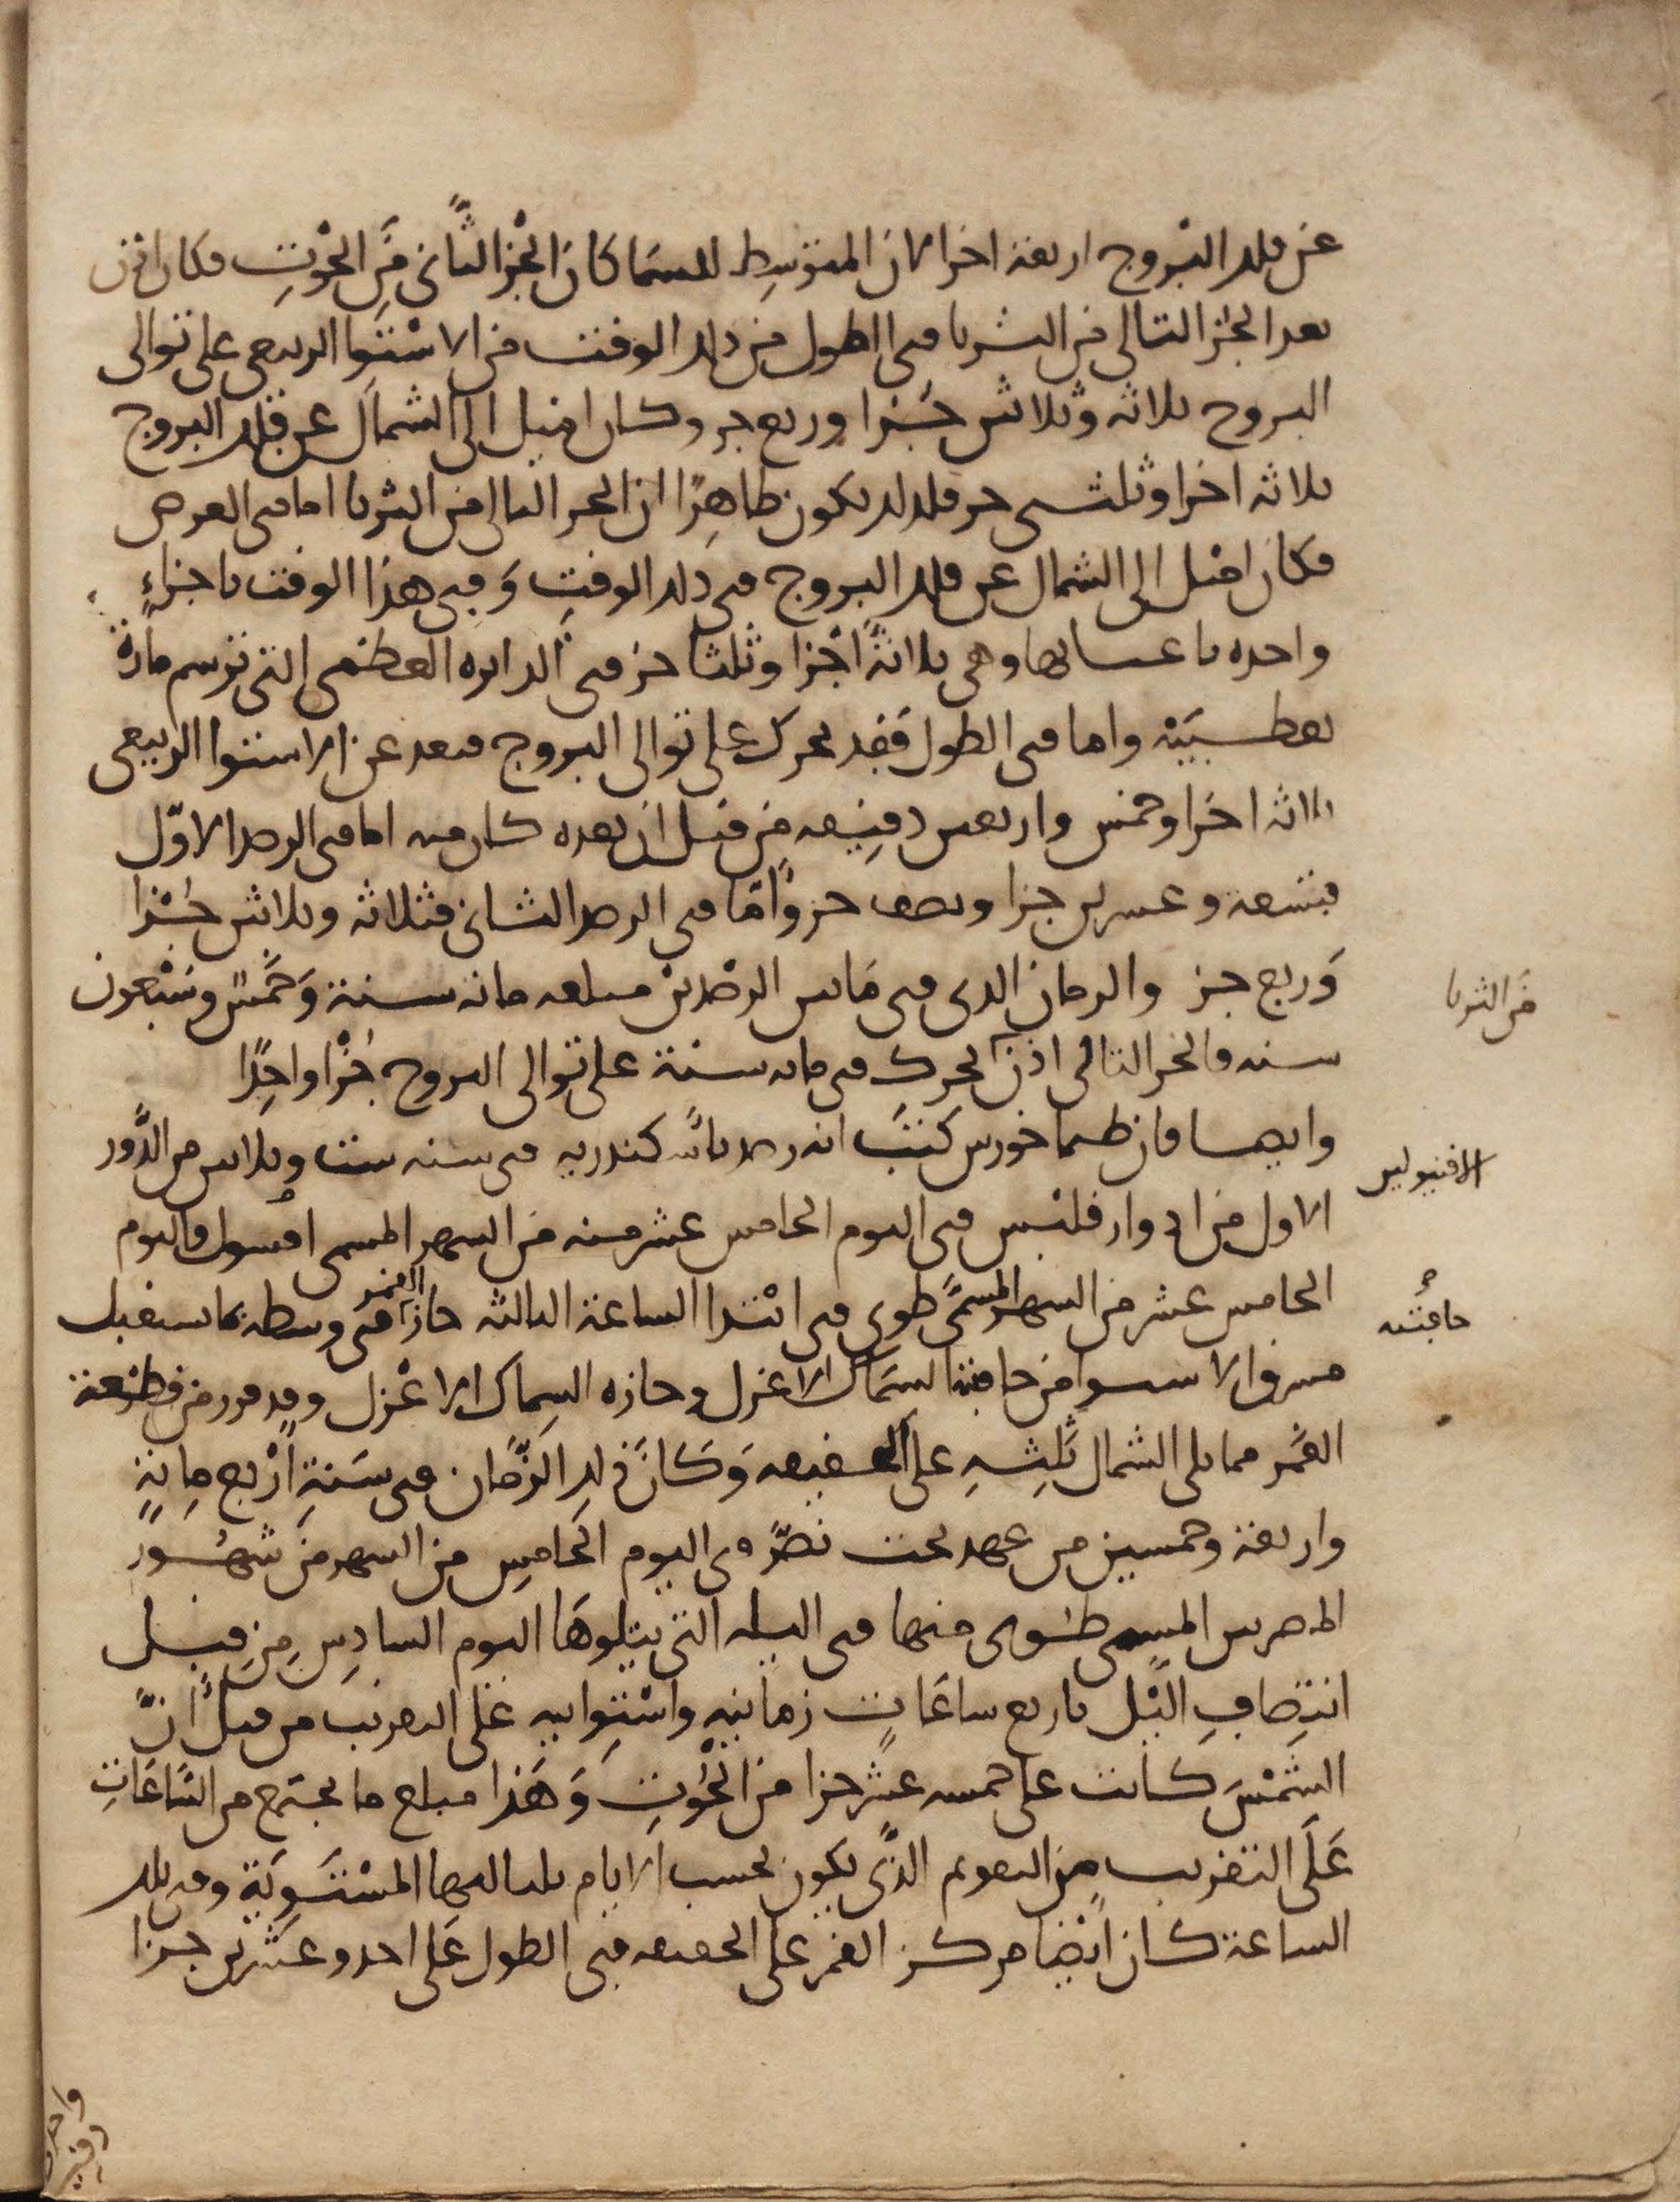 عن فلك البروج اربعة اجزا لان المتوسط للسما كان الجز الثاني من الحوت فكان اذن
بعد الجز التالي من الثريا في الطول من ذلك الوقت من الاستوا الربيعي على توالي
البروج ثلاثه وثلاثين جزا وربع جز وكان اميل الى الشمال عن فلك البروج
ثلاثه اجزا وثلثي جز فلذلك يكون ظاهرا ان الجز التالي من الثريا اما في العرض
فكان اميل الى الشمال عن فلك البروج في ذلك الوقت وفي هذا الوقت باجزاء
واحده باعيانها وهي ثلاثة اجزا وثلثا جز في الدايره العظمى التي ترسم مارة
بقطبيه واما في الطول فقد تحرك على توالي البروج فبعد عن الاستوا الربيعي
ثلاثه اجزا وخمس واربعين دقيقه من قبل ان بعده كان منه اما في الرصد الاول
فتسعة وعشرين جزا ونصف جز واما في الرصد الثاني فثلاثه وثلاثين جزا
وربع جز والزمان الذي في مابين الرصدين مبلغه مائه سنة وخمس وسبعون
من الثريا
سنه فالجز التالي اذن تحرك في مائه سنة على توالي البروج جزا واحدا
وايضا فان طيماخورس كتب انه رصد بالاسكندريه في سنه ست وثلاثين من الدور
الافنيوليس
الاول من ادوار فلنبس في اليوم الخامس عشر منه من الشهر المسمى افسول واليوم
الخامس عشر من الشهر المسمى طوبي في ابتدا الساعة الثالثه حاز القمر في وسطه مما يستقبل
حافته
مشرق الاستوا من حافة السماك الاعزل وحازه السماك الاعزل وقد مرر من قطعة
القمر مما يلي الشمال ثلثه على الحقيقه وكان ذلك الزمان في سنة اربع مائة
واربعة وخمسين من عهد بخت نصر في اليوم الخامس من الشهر من شهور
المصريين المسمى طوبي منها في الليله التي يتلوها اليوم السادس من قبل
انتصاف الليل باربع ساعات زمانيه واستوائيه على التقريب من قبل ان
الشمس كانت على خمسه عشر جزا من الحوت وهذا مبلغ ما يجتمع من الساعات
على التقريب من التقويم الذي يكون بحسب الايام بلياليها المستوية وفي تلك
الساعة كان ايضا مركز القمر على الحقيقه في الطول على احد وعشرين جزا